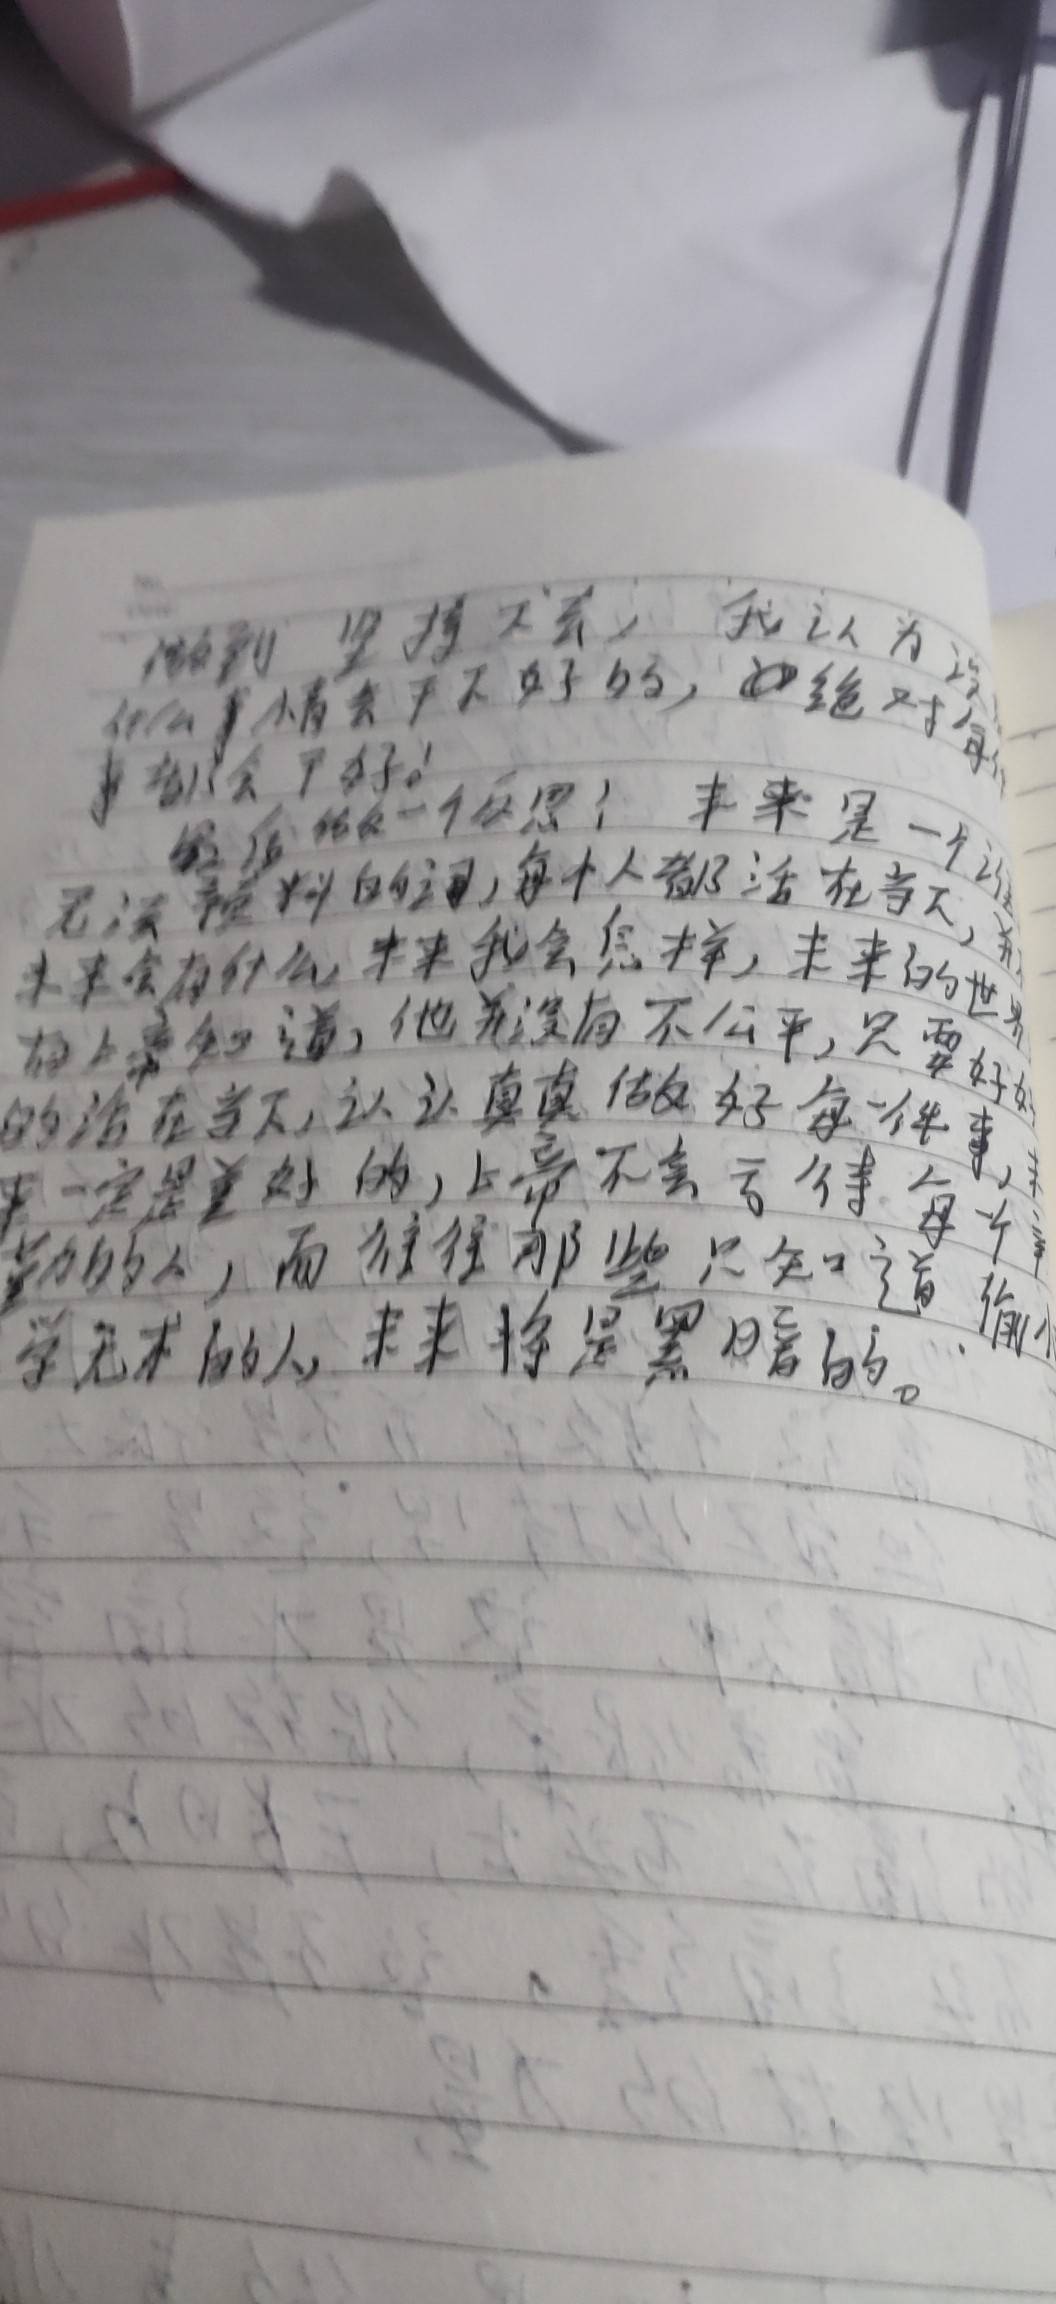 做到 坚持不去, 我认为没
什么事情会干不好的, 绝对每件
事都会干好!
最后做一个反思! 未来是一个让
无法预料的词, 每个人都活在当天,
未来会有什么, 未来我会怎样, 未来的世界
有上帝知道, 他并没有不公平, 只要好好
的活在当天, 认认真真做好每一件事,
来一定是美好的, 上帝不会亏待每一个
勤的人, 而往往那些只知道偷
学无术的人, 未来将是黑暗的。